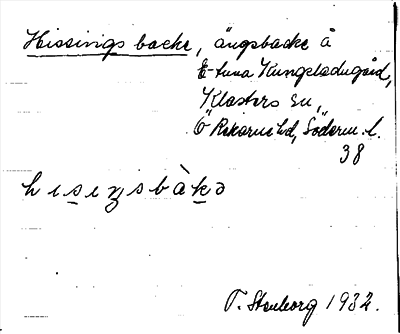 Hissings backe, ängsbacke å
E-tuna Kungsladugård,
Klosters sn,
Ö Rekarne hd, Söderm. l.
38
h ı s ı ŋ s b à k ə
T. Stenborg 1932.